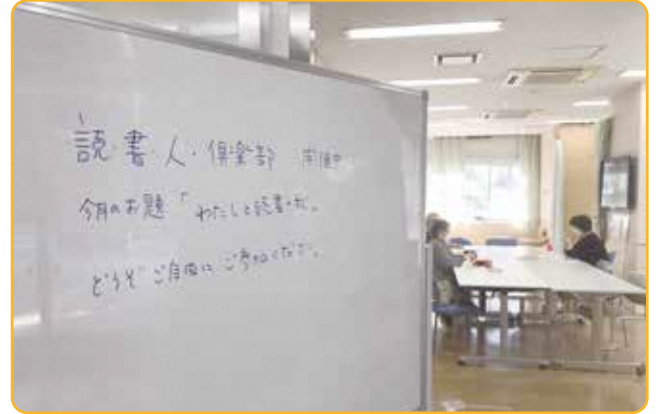 読・書・人・倶楽部 開催中
今月のお題「わたしと読書」だ。
どうぞ ご自由に ご参加ください。